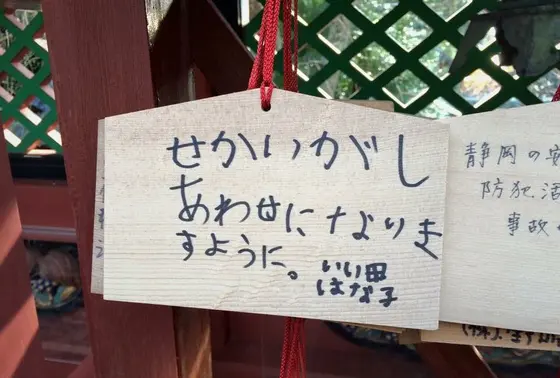 せかいがし
あわせになりま
すように。
いい田
はな子
静岡の安
防犯活
事故